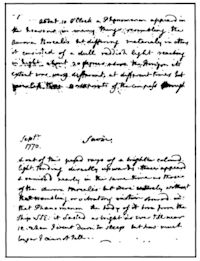 about 10 O'Clock a Phænomenon appeard in
the heavens in many things resembling the
Aurora Borealis but differing materialy in others
it consisted of a dull reddish light reaching
in hight about 20 degrees above the Horizon its
extent was very different at different times but
never less than 8 or 10 points of the compass through
Septr.
1770. Savu
& out of this passd rays of a brighter colourd
light tending directly upwards these appeard
& vanishd nearly in the same time as those
of the Aurora Borealis but were entirely without
that trembling or vibratory motion observd in
that Phænomenon the body of it bore from the
Ship SSE: it lasted as bright as ever till near
12 when I went down to sleep but how much
longer I cannot tell.